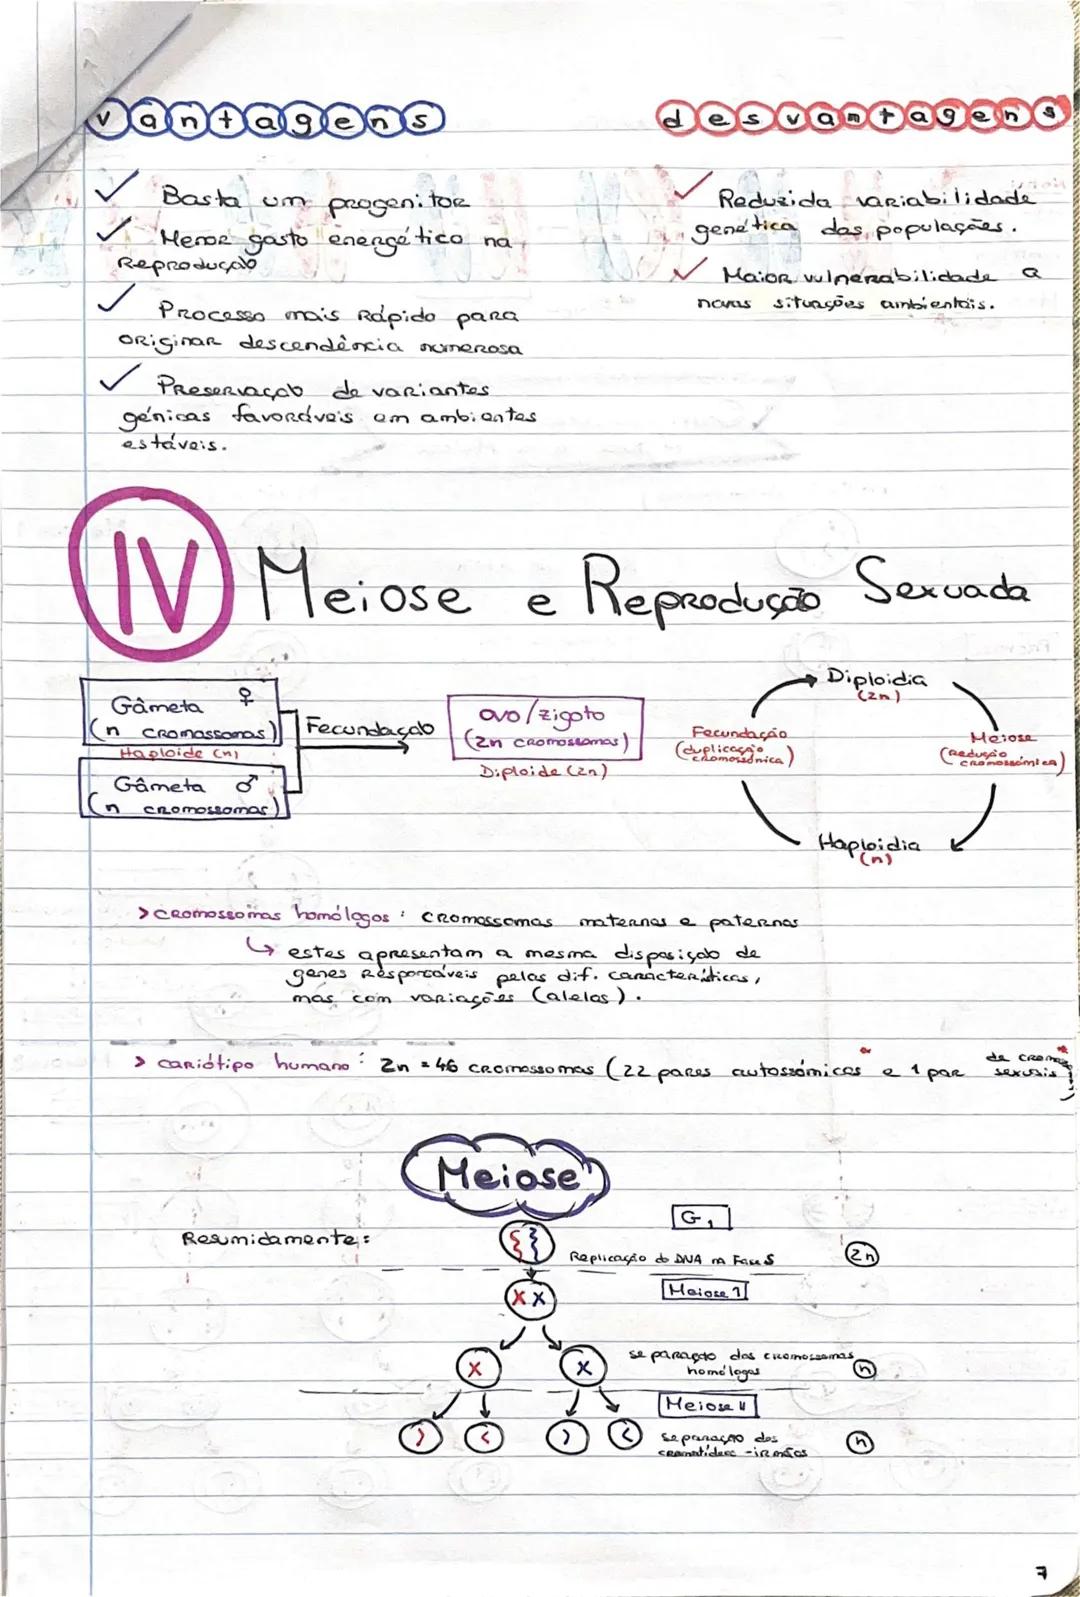 vantagens
Basta um progenitor
Menor gasto energético na
Reprodução
Processo mais Rápido para
originar descendência numerosa
Preservação de variantes
génicas favoráveis em ambientes
estáveis.
desvantagens
Reduzida variabilidade
genética das populações.
Maior vulnerabilidade a
novas situações ambientais.
IV Meiose e Reprodução Sexuada
Gâmeta ♀
(n cromossomas)
Haploide (n)
Gâmeta ♂
(n cromossomas)
Fecundação
ovo/zigoto
(2n cromossomas)
Diploide (2n)
Diploidia
(2n)
Fecundação
(duplicação
cromossómica)
Meiose
(Redução
cromossómica)
Haploidia
(n)
> cromossomas homólogos: cromossomas maternos e paternos
↳ estes apresentam a mesma disposição de
genes responsáveis pelas dif. características,
mas com variações (alelos).
> cariótipo humano: 2n = 46 cromossomas (22 pares autossómicos e 1 par
sexuais)
Meiose
Resumidamente:
G1
Replicação do DNA na Fase S
2n
Meiose I
separação dos cromossomas
homólogos
n
Meiose II
separação dos
cromatídeos-irmãos
n
7